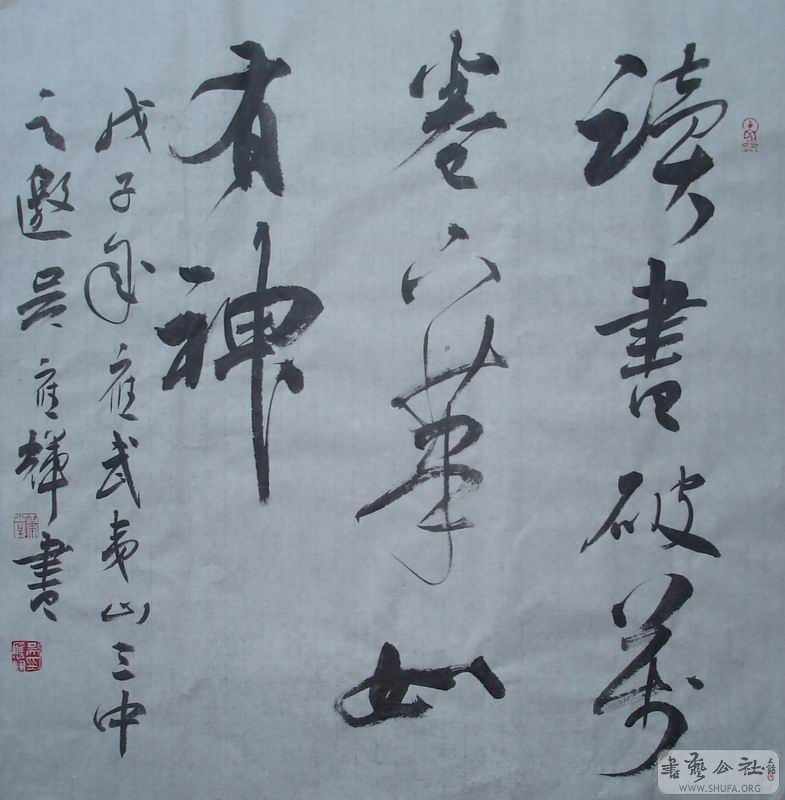 讀書破萬
卷下筆如
有神
戊子年應武夷山三中
之邀吳應輝書
書藝公社
WWW.SHUFA.ORG